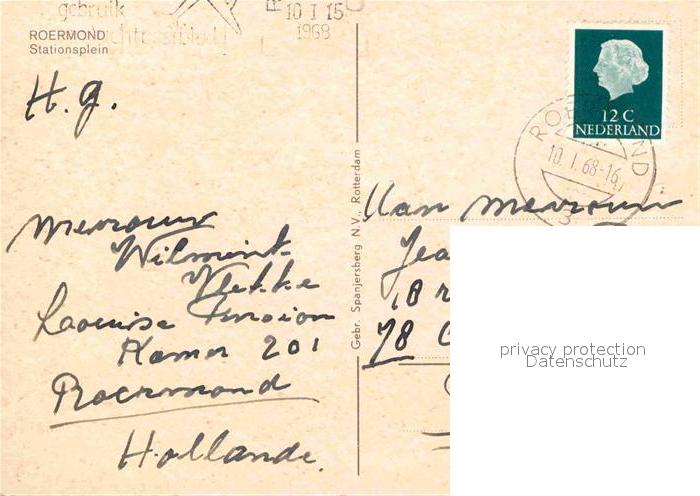 gebruik
10 I 15
1968
ROERMOND
Stationsplein
H.g.
12 C
NEDERLAND
10.I.68-16
Mevrouw
Wilmint-
Louise Pension
Kamer 201
Roermond
Hollande.
Gebr. Spanjersberg N.V., Rotterdam
Aan mevrouw
Jea
18 r
78 C
privacy protection
Datenschutz